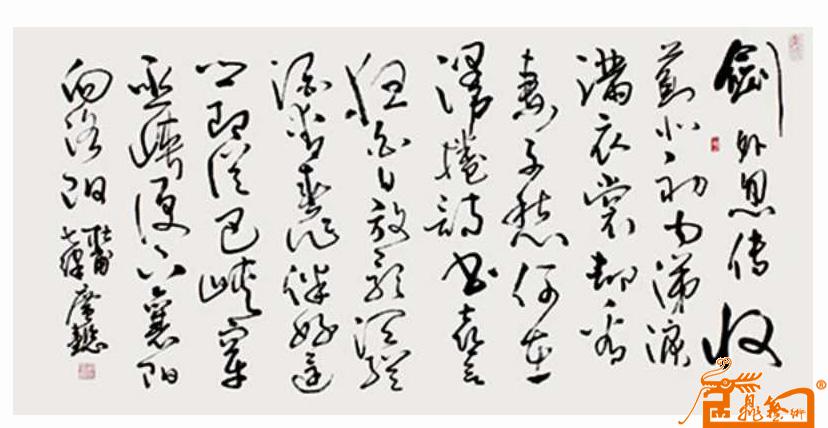 劍外忽传收
蓟北初闻涕淚
满衣裳却看
妻子愁何在
漫捲詩书喜欲
狂白日放歌须纵
酒青春作伴好还
乡即从巴峡穿
巫峡便下襄阳
向洛阳 杜甫
七律
藝術®